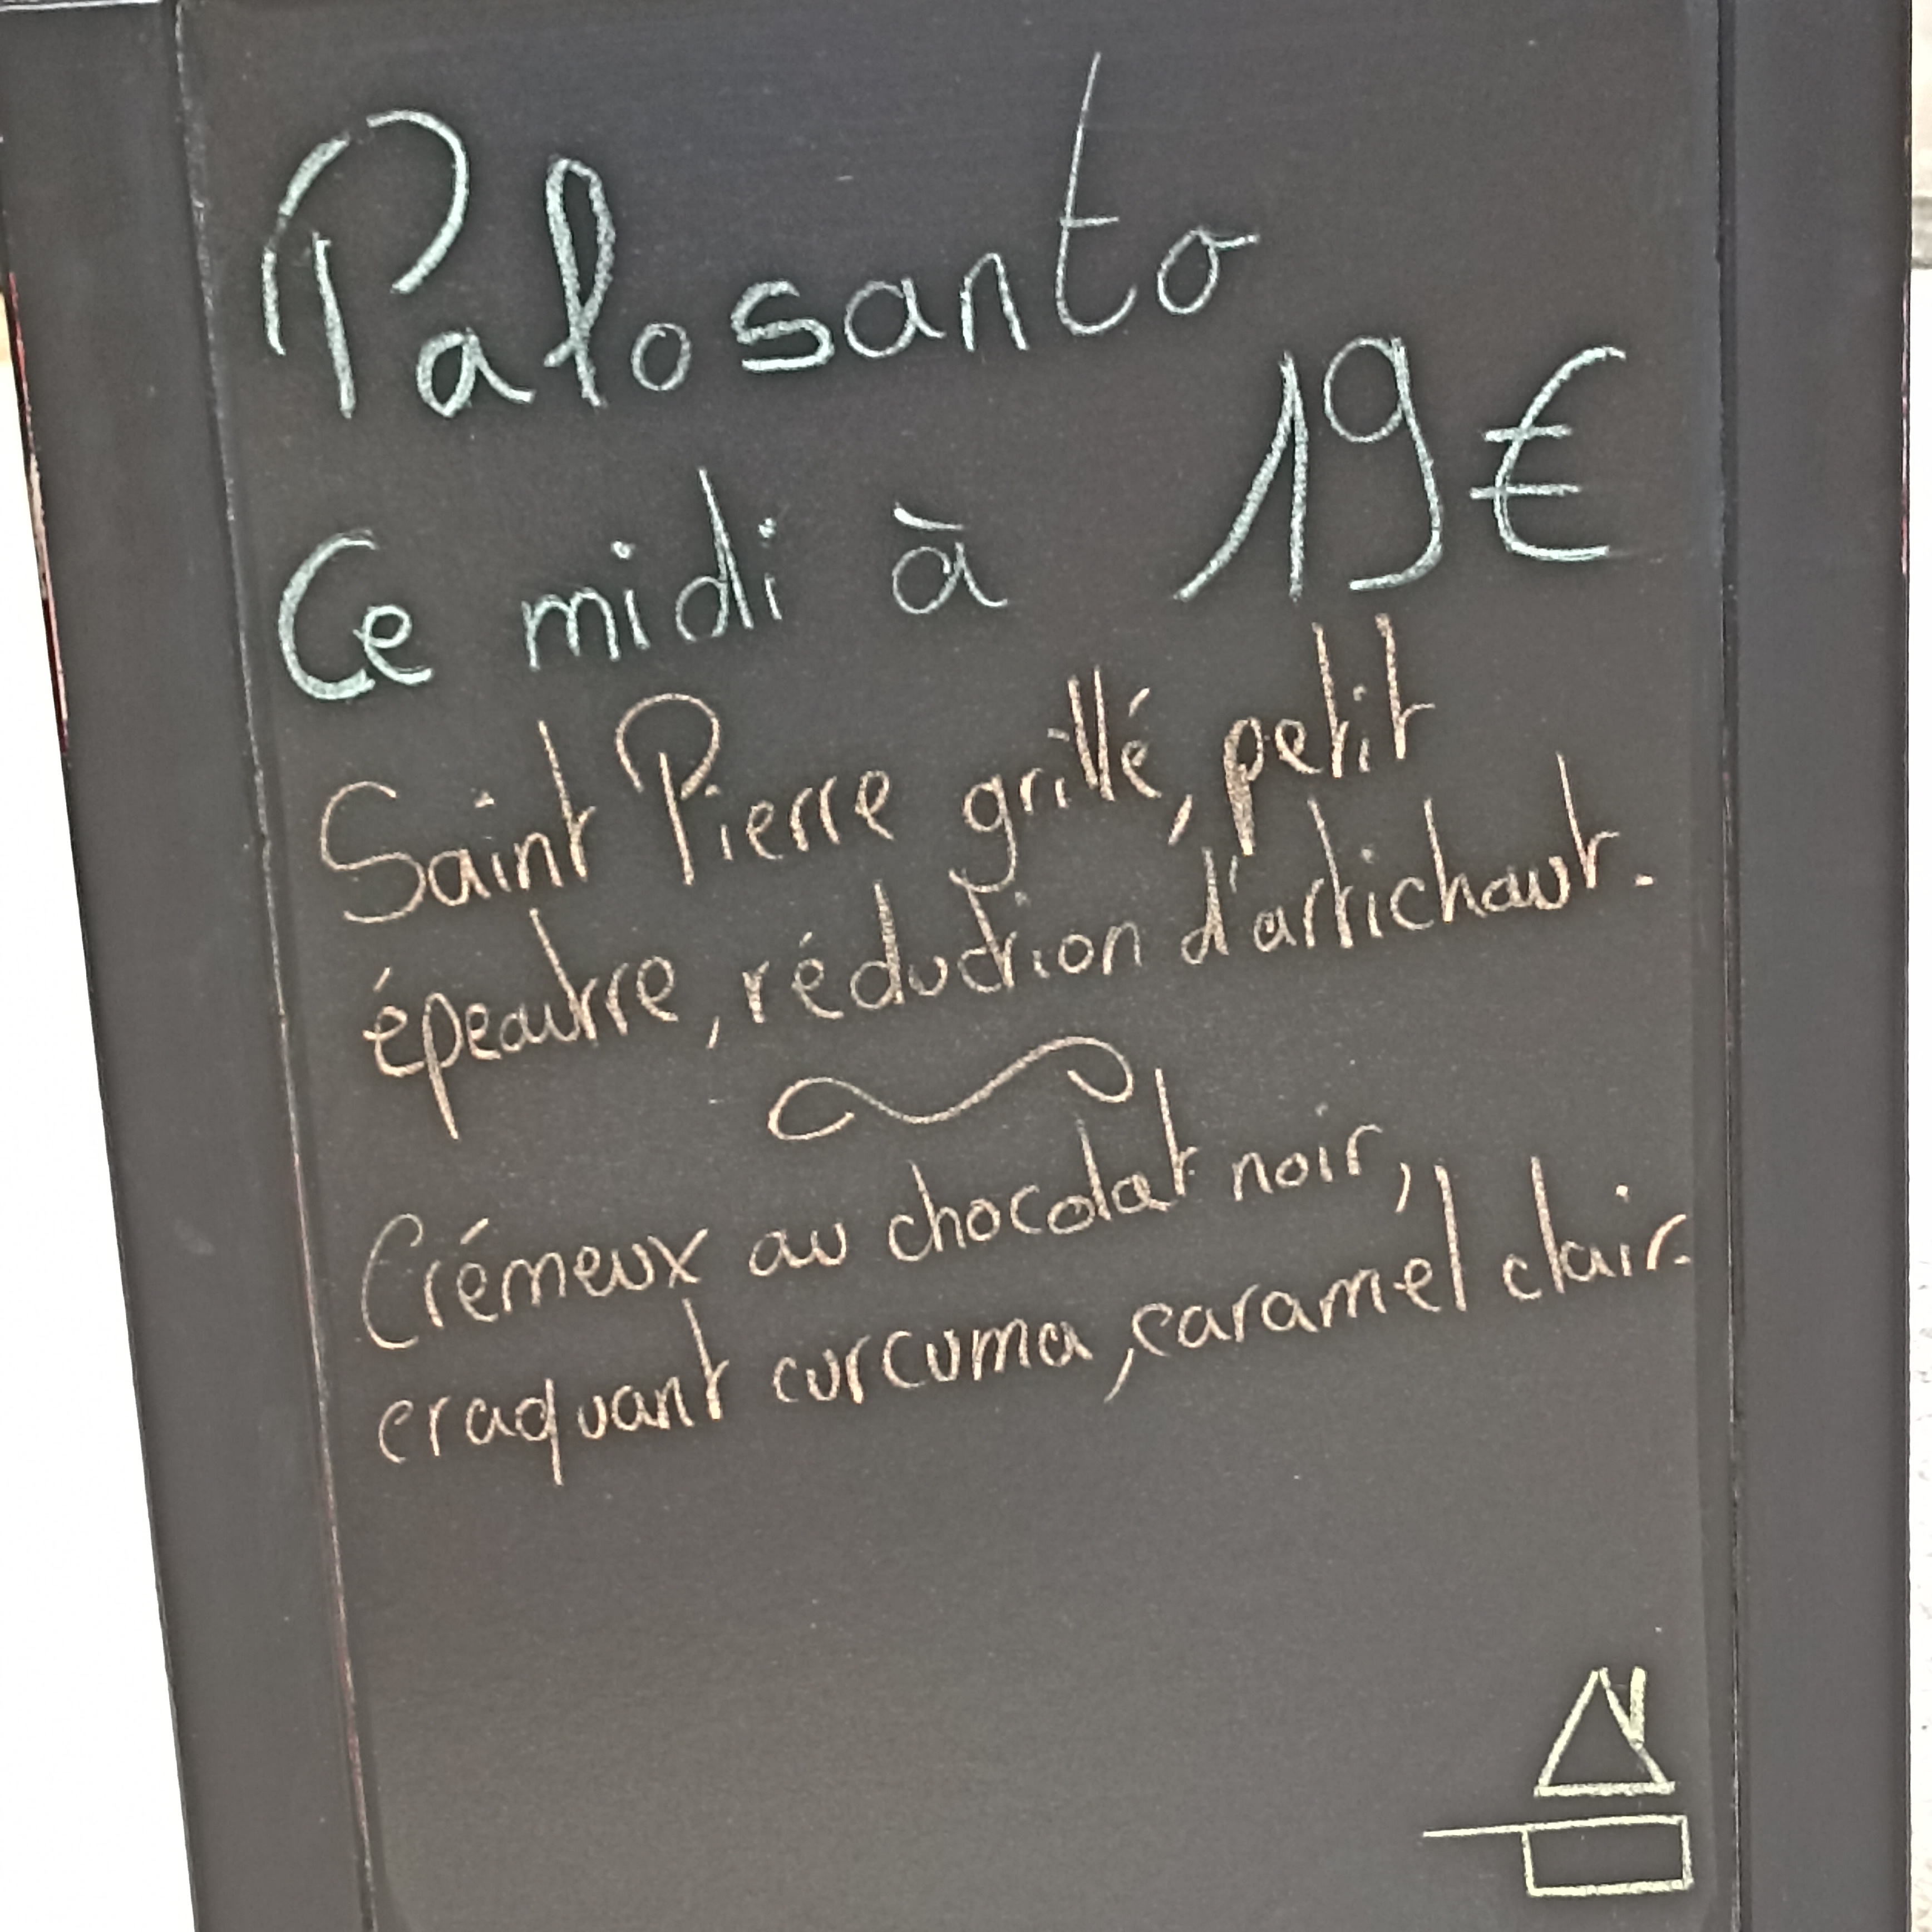 Palosanto
Ce midi à 19€
Saint Pierre grillé, petit
épeautre, réduction d'artichaut.
Crémeux au chocolat noir,
craquant curcuma, caramel clair.